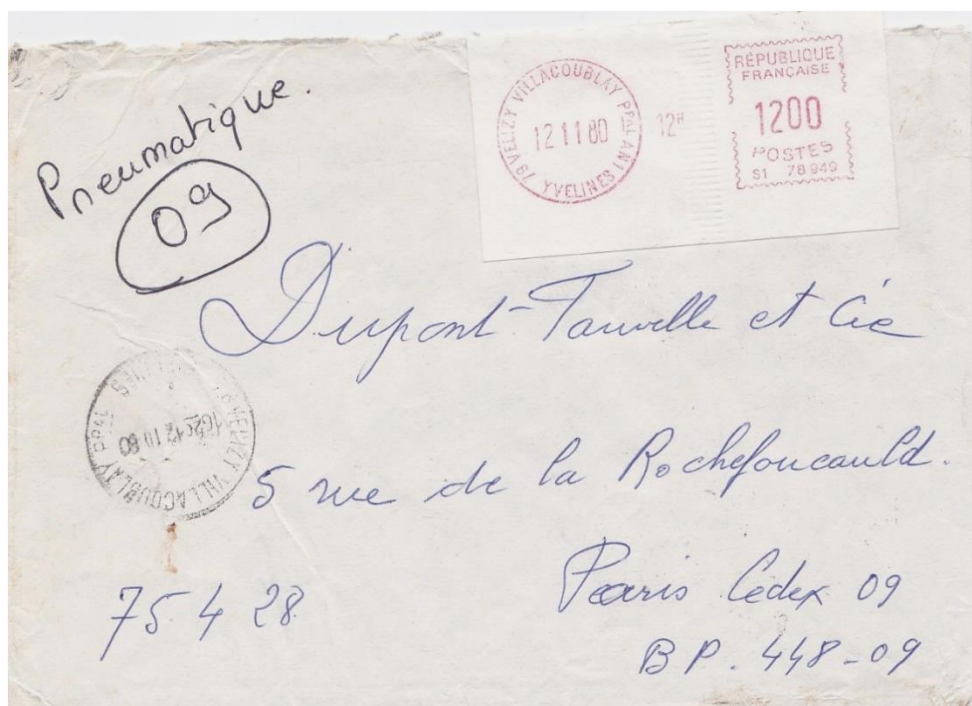 Pneumatique.
09
78 VELIZY VILLACOUBLAY PPAL AN1
YVELINES
12 11 80
12H
RÉPUBLIQUE
FRANÇAISE
1200
POSTES
S1 78949
Dupont-Tauvelle et Cie
VELIZY VILLACOUBLAY PPAL
80
5 rue de la Rochefoucauld.
75 4 28
Paris Cedex 09
B P. 448-09